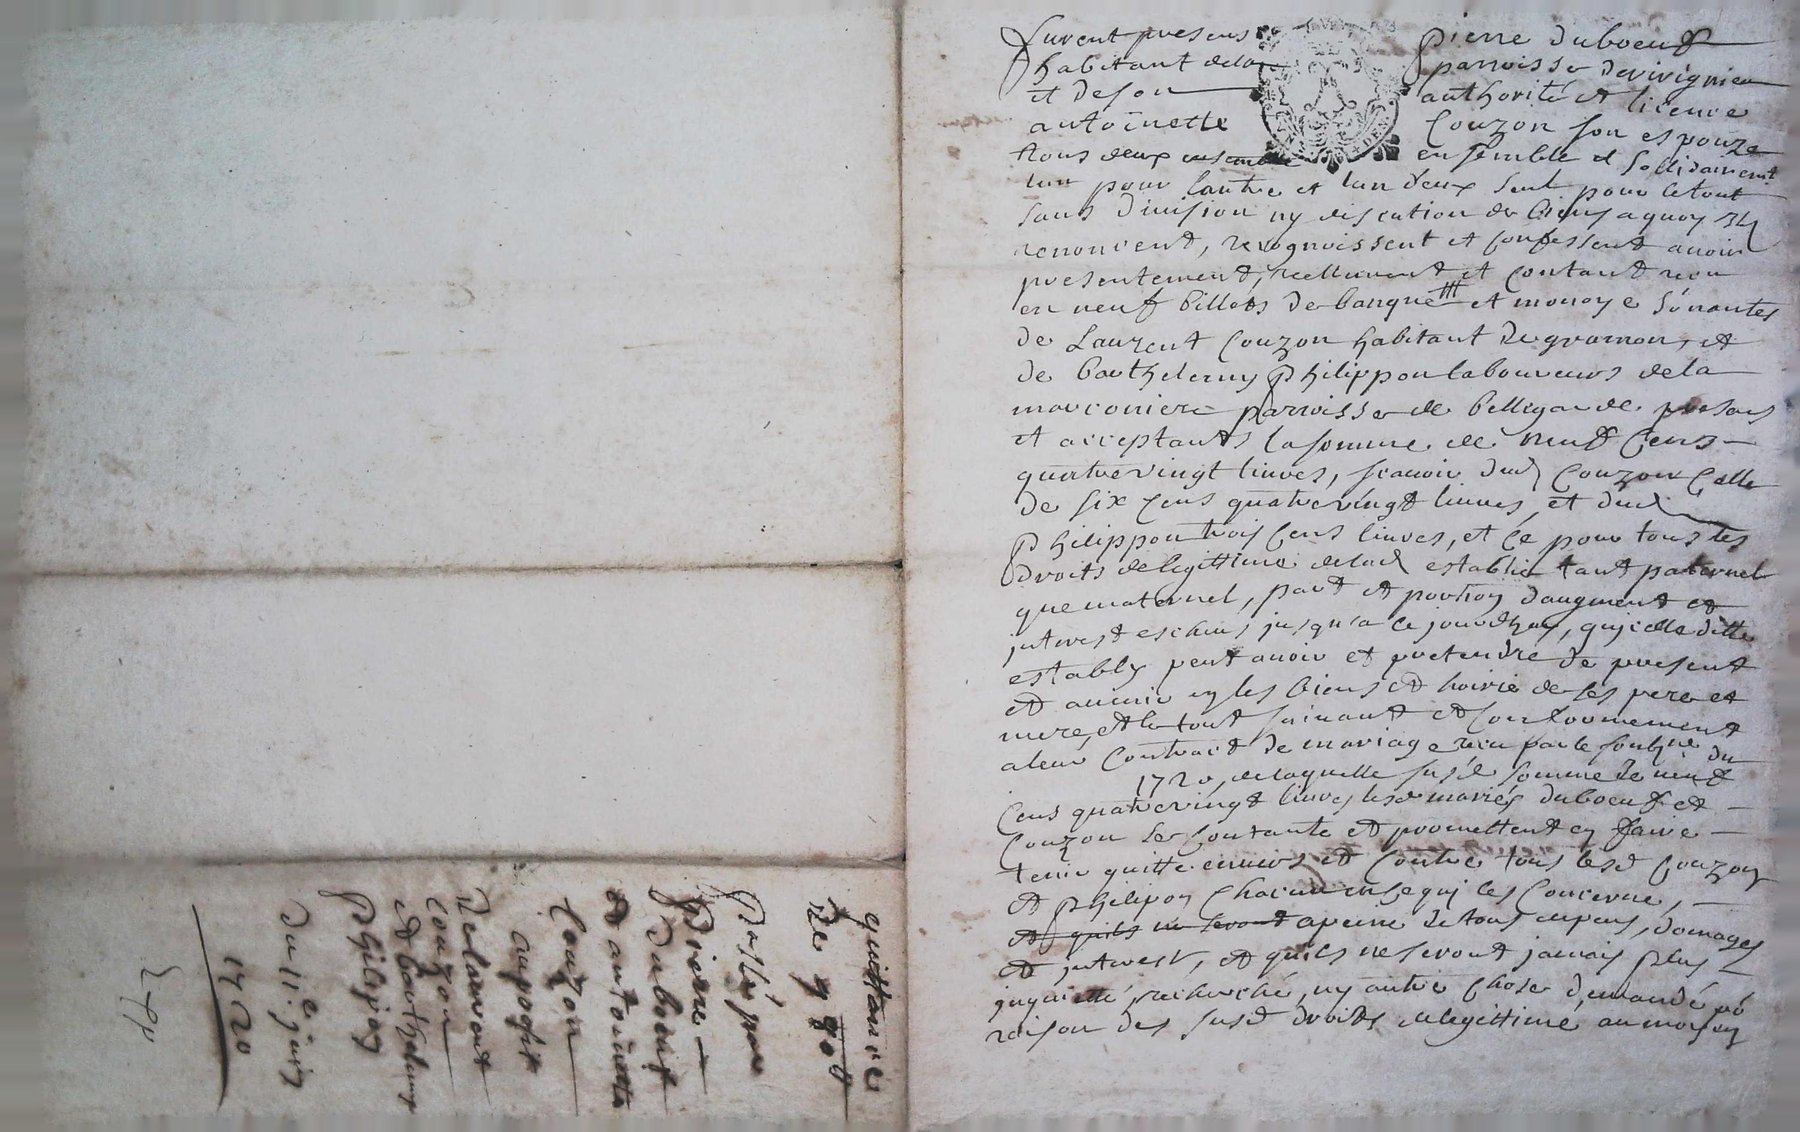 furent presens pierre duboeuf
habitant de la parroisse de virignieu
et de son authorité et licence
antoinette Couzon son espouze
tous deux ensemble et sollidairement
lun pour lautre et lun deux seul pour le tout
sans division ny discution de biens a quoy ils
renoncent, recognoissent et confessent avoir
presentement, reellement et contant receu
en neuf billets de banque et monoye sonantes
de Laurent Couzon habitant de gramon, et
de barthelemy philippon laboureurs de la
marconiere parroisse de bellegarde presans
et acceptants la somme de neuf cens
quatre vingt livres, scavoir dud Couzon celle
de six cens quatre vingt livres, et dud
philippon trois cens livres, et ce pour tous les
droits de legittime de lad establie tant paternel
que maternel, part et portion daugment et
interest escheus jusqua ce jourdhuy, quicelle ditte
establye peut avoir et pretendre de present
et avenir ez les biens et hoirie de ses pere et
mere, et le tout suivant et conformement
a leur contract de mariage receu par le soubzne du
1720, de laquelle susd somme de neuf
cens quatre vingt livres lesd mariés duboeuf et
Couzon se contante et promettent en faire
tenir quitte envers et contre tous lesd Couzon
et philipon chacun en ce qui les concerne,
et quils ne seront a peine de tous depens, domages
et interest, et quils ne seront jamais plus
inquietté, recherché, ny autre chose demandé po
raison des susd droits de legittime au moyen
quittance
de 980 lt
passée par
pierre
Duboeuf
et antoinette
Couzon
au profit
de laurent
couzon
et barthelemy
philipon
du 11e juin
1720